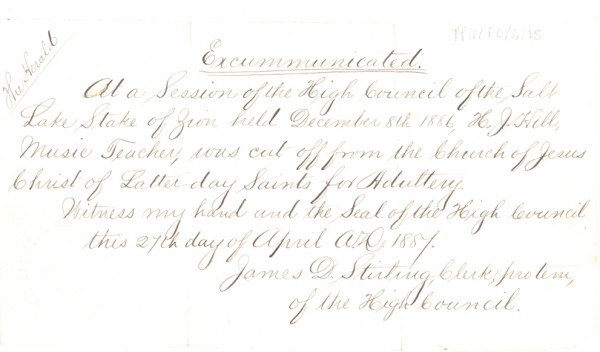 The Herald
Excummunicated.
At a Session of the High Council of the Salt
Lake Stake of Zion held December 8th 1886, H. J. Hill,
Music Teacher, was cut off from the Church of Jesus
Christ of Latter-day Saints for Adultery.
Witness my hand and the Seal of the High Council
this 27th day of April A.D. 1887.
James D. Stirling, Clerk, protem,
of the High Council.